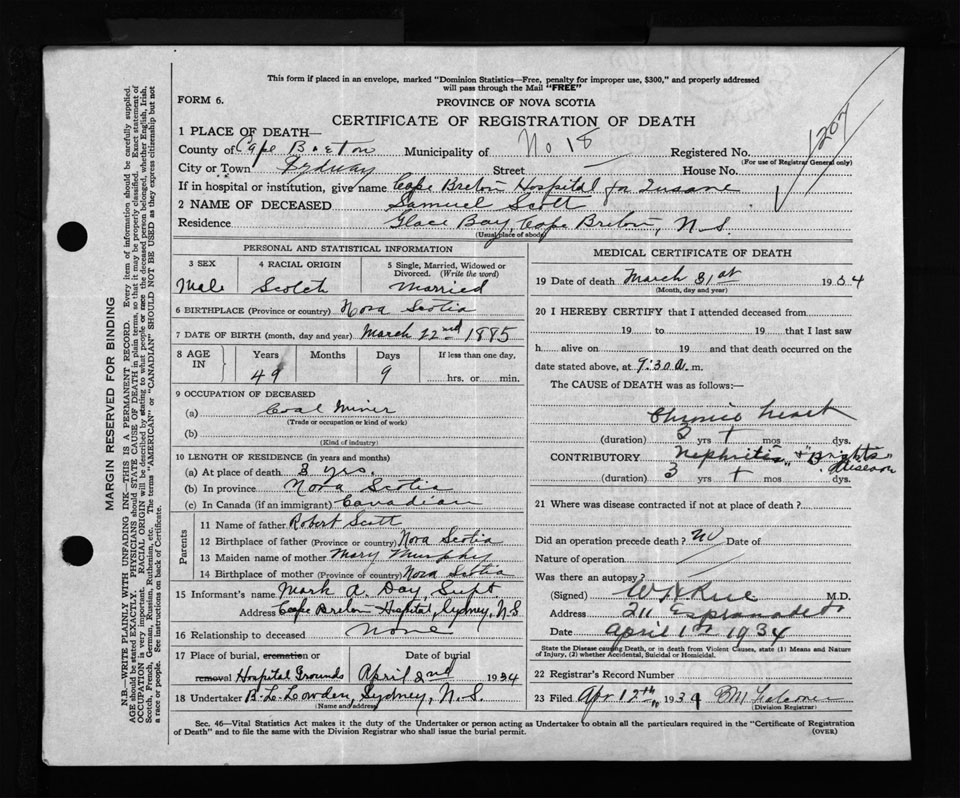 This form if placed in an envelope, marked "Dominion Statistics—Free, penalty for improper use, $300," and properly addressed
will pass through the Mail "FREE"
FORM 6.
PROVINCE OF NOVA SCOTIA
CERTIFICATE OF REGISTRATION OF DEATH
1207
1 PLACE OF DEATH—
County of Cape Breton Municipality of No 18 Registered No.
(For use of Registrar General only)
City or Town Sydney Street House No.
If in hospital or institution, give name Cape Breton Hospital for Insane
2 NAME OF DECEASED Samuel Scott
Residence Glace Bay, Cape Breton, N.S.
(Usual place of abode)
PERSONAL AND STATISTICAL INFORMATION
3 SEX 4 RACIAL ORIGIN 5 Single, Married, Widowed or
Divorced. (Write the word)
Male Scotch Married
6 BIRTHPLACE (Province or country) Nova Scotia
7 DATE OF BIRTH (month, day and year) March 22nd 1885
8 AGE IN Years Months Days If less than one day,
49 9 hrs. or min.
9 OCCUPATION OF DECEASED
(a) Coal Miner
(Trade or occupation or kind of work)
(b)
(Kind of industry)
10 LENGTH OF RESIDENCE (in years and months)
(a) At place of death 3 yrs.
(b) In province Nova Scotia
(c) In Canada (if an immigrant) Canadian
Parents
11 Name of father Robert Scott
12 Birthplace of father (Province or country) Nova Scotia
13 Maiden name of mother Mary Murphy
14 Birthplace of mother (Province or country) Nova Scotia
15 Informant's name Mark A. Day, Supt
Address Cape Breton Hospital, Sydney, N.S
16 Relationship to deceased None
17 Place of burial, cremation or Date of burial
removal Hospital Grounds April 2nd 1934
18 Undertaker B. L. Lowden, Sydney, N.S.
(Name and address)
MEDICAL CERTIFICATE OF DEATH
19 Date of death March 31st 1934
(Month, day and year)
20 I HEREBY CERTIFY that I attended deceased from
19 to 19 that I last saw
h alive on 19 and that death occurred on the
date stated above, at 9:30 a. m.
The CAUSE of DEATH was as follows:—
Chronic heart
(duration) 3 yrs + mos dys.
CONTRIBUTORY Nephritis, + "Brights" disease
(duration) 3 yrs + mos dys.
21 Where was disease contracted if not at place of death?
Did an operation precede death? no Date of
Nature of operation
Was there an autopsy?
(Signed) M.D.
Address 211 Esplanade
Date April 1st 1934
State the Disease causing Death, or in death from Violent Causes, state (1) Means and Nature
of Injury, (2) whether Accidental, Suicidal or Homicidal.
22 Registrar's Record Number
23 Filed Apr 12th, 1934 Falconer
(Division Registrar)
Sec. 46—Vital Statistics Act makes it the duty of the Undertaker or person acting as Undertaker to obtain all the particulars required in the "Certificate of Registration
of Death" and to file the same with the Division Registrar who shall issue the burial permit.
(OVER)
MARGIN RESERVED FOR BINDING
N.B.—WRITE PLAINLY WITH UNFADING INK—THIS IS A PERMANENT RECORD. Every item of information should be carefully supplied.
AGE should be stated EXACTLY. PHYSICIANS should STATE CAUSE OF DEATH in plain terms, so that it may be properly classified. Exact statement of
OCCUPATION is very important. RACIAL ORIGIN will be described by stating to what people or race the deceased person belonged, whether English, Irish,
Scotch, French, German, Russian, Ruthenian, etc. The terms "AMERICAN" or "CANADIAN" SHOULD NOT BE USED as they express citizenship but not
a race or people. See instructions on back of Certificate.